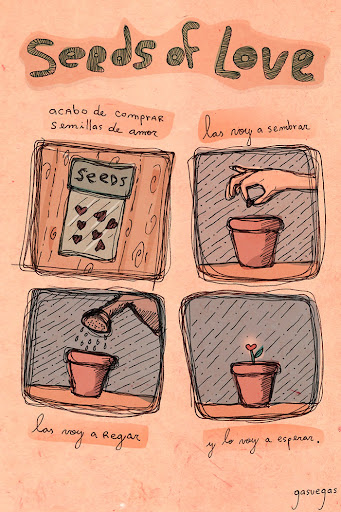 SEEDS OF LOVE
acabo de comprar
semillas de amor
las voy a sembrar
SEEDS
las voy a regar
y lo voy a esperar.
gasvegas